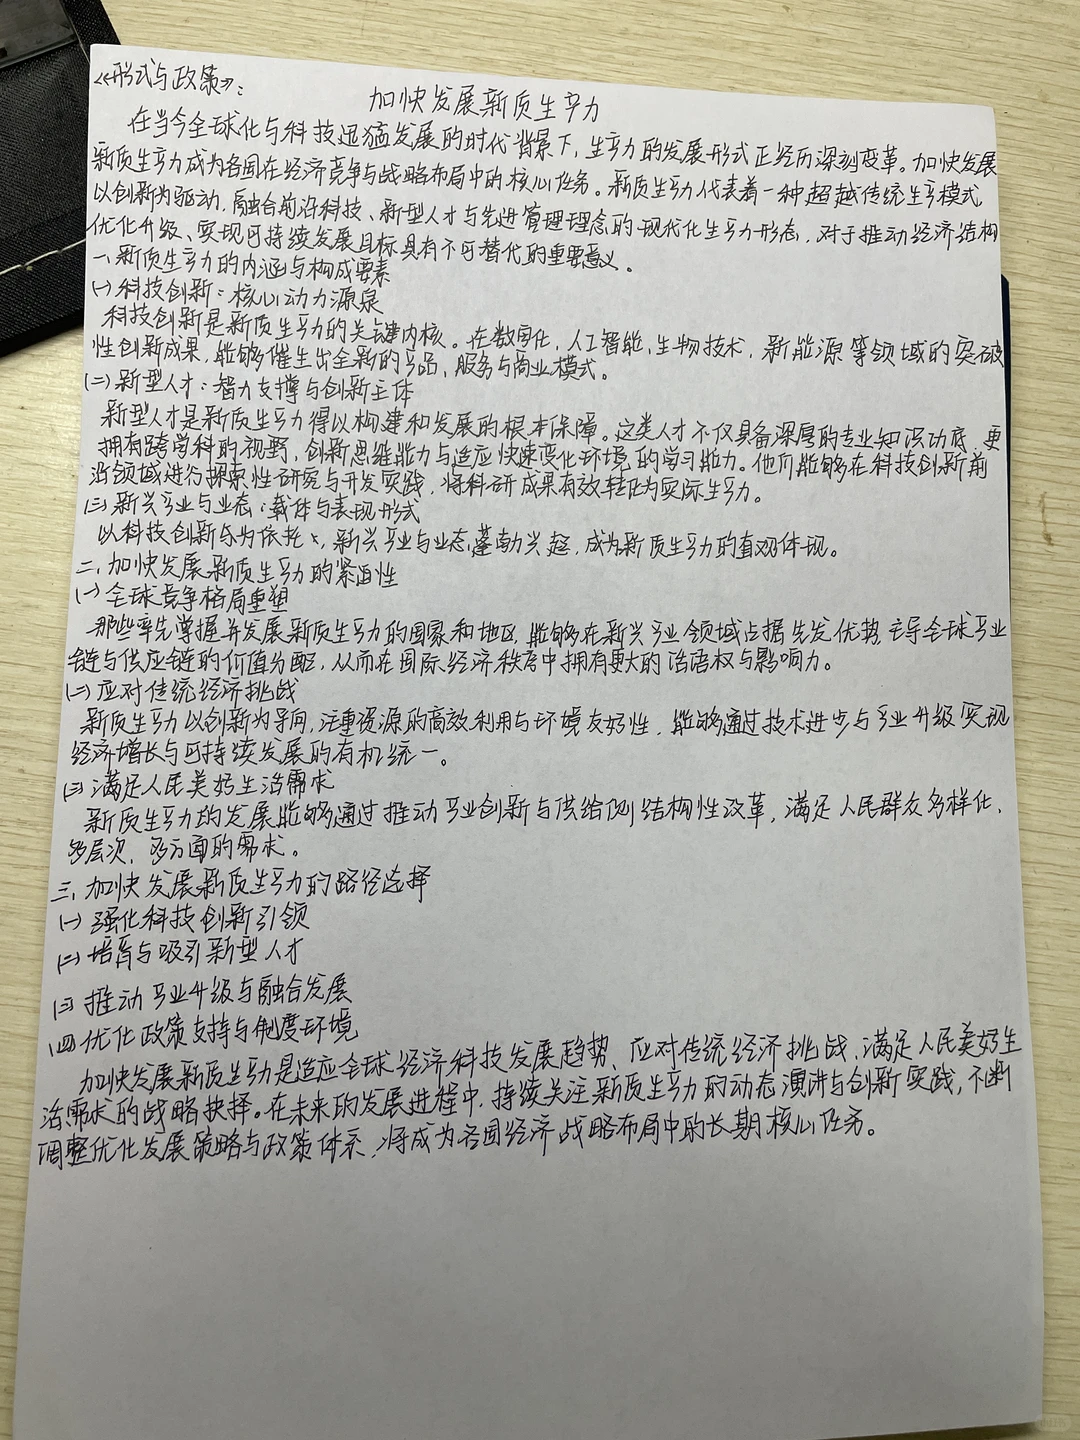 《形式与政策》：
加快发展新质生产力
在当今全球化与科技迅猛发展的时代背景下，生产力的发展形式正经历深刻变革。加快发展
新质生产力成为各国在经济竞争与战略布局中的核心任务。新质生产力代表着一种超越传统生产模式，
以创新为驱动，融合前沿科技、新型人才与先进管理理念的现代化生产力形态，对于推动经济结构
优化升级、实现可持续发展目标具有不可替代的重要意义。
一、新质生产力的内涵与构成要素
(一)科技创新：核心动力源泉
科技创新是新质生产力的关键内核。在数字化，人工智能，生物技术，新能源等领域的突破
性创新成果，能够催生出全新的产品，服务与商业模式。
(二)新型人才：智力支撑与创新主体
新型人才是新质生产力得以构建和发展的根本保障。这类人才不仅具备深厚的专业知识功底，更
拥有跨学科的视野，创新思维能力与适应快速变化环境的学习能力。他们能够在科技创新前
沿领域进行探索性研究与开发实践，将科研成果有效转化为实际生产力。
(三)新兴产业与业态：载体与表现形式
以科技创新为依托，新兴产业与业态蓬勃兴起，成为新质生产力的直观体现。
二、加快发展新质生产力的紧迫性
(一)全球竞争格局重塑
那些率先掌握并发展新质生产力的国家和地区，能够在新兴产业领域占据先发优势，主导全球产业
链与供应链的价值分配，从而在国际经济秩序中拥有更大的话语权与影响力。
(二)应对传统经济挑战
新质生产力以创新为导向，注重资源的高效利用与环境友好性，能够通过技术进步与产业升级实现
经济增长与可持续发展的有机统一。
(三)满足人民美好生活需求
新质生产力的发展能够通过推动产业创新与供给侧结构性改革，满足人民群众多样化、
多层次、多方面的需求。
三、加快发展新质生产力的路径选择
(一)强化科技创新引领
(二)培育与吸引新型人才
(三)推动产业升级与融合发展
(四)优化政策支持与制度环境
加快发展新质生产力是适应全球经济科技发展趋势、应对传统经济挑战、满足人民美好生
活需求的战略抉择。在未来的发展进程中，持续关注新质生产力的动态演进与创新实践，不断
调整优化发展策略与政策体系，将成为各国经济战略布局中的长期核心任务。